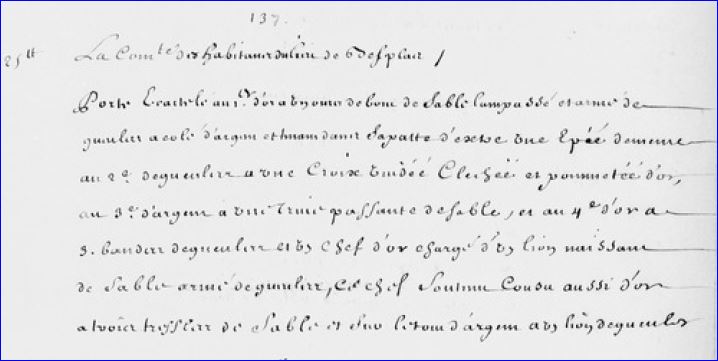 137.
25lt La Com.té des habitans du lieu de
Porte Ecartelé au 1.er d'or a un ours debout de sable lampassé et armé de
gueulles acolé d'argen et tenant dans sa patte d'extre une Epéé de meme
au 2.e de gueulles a une Croix vuidéé Clechéé et pommetéé d'or,
au 3.e d'argent à une Truie passante de sable, et au 4.e d'or a
3. bandes de gueulles et un chef d'or chargé d'un lion naissant
de sable armé de gueulles, Ce chef soutenu Cousu aussi d'or
a trois treffles de sable et sur le tout d'argent a un lion de gueules